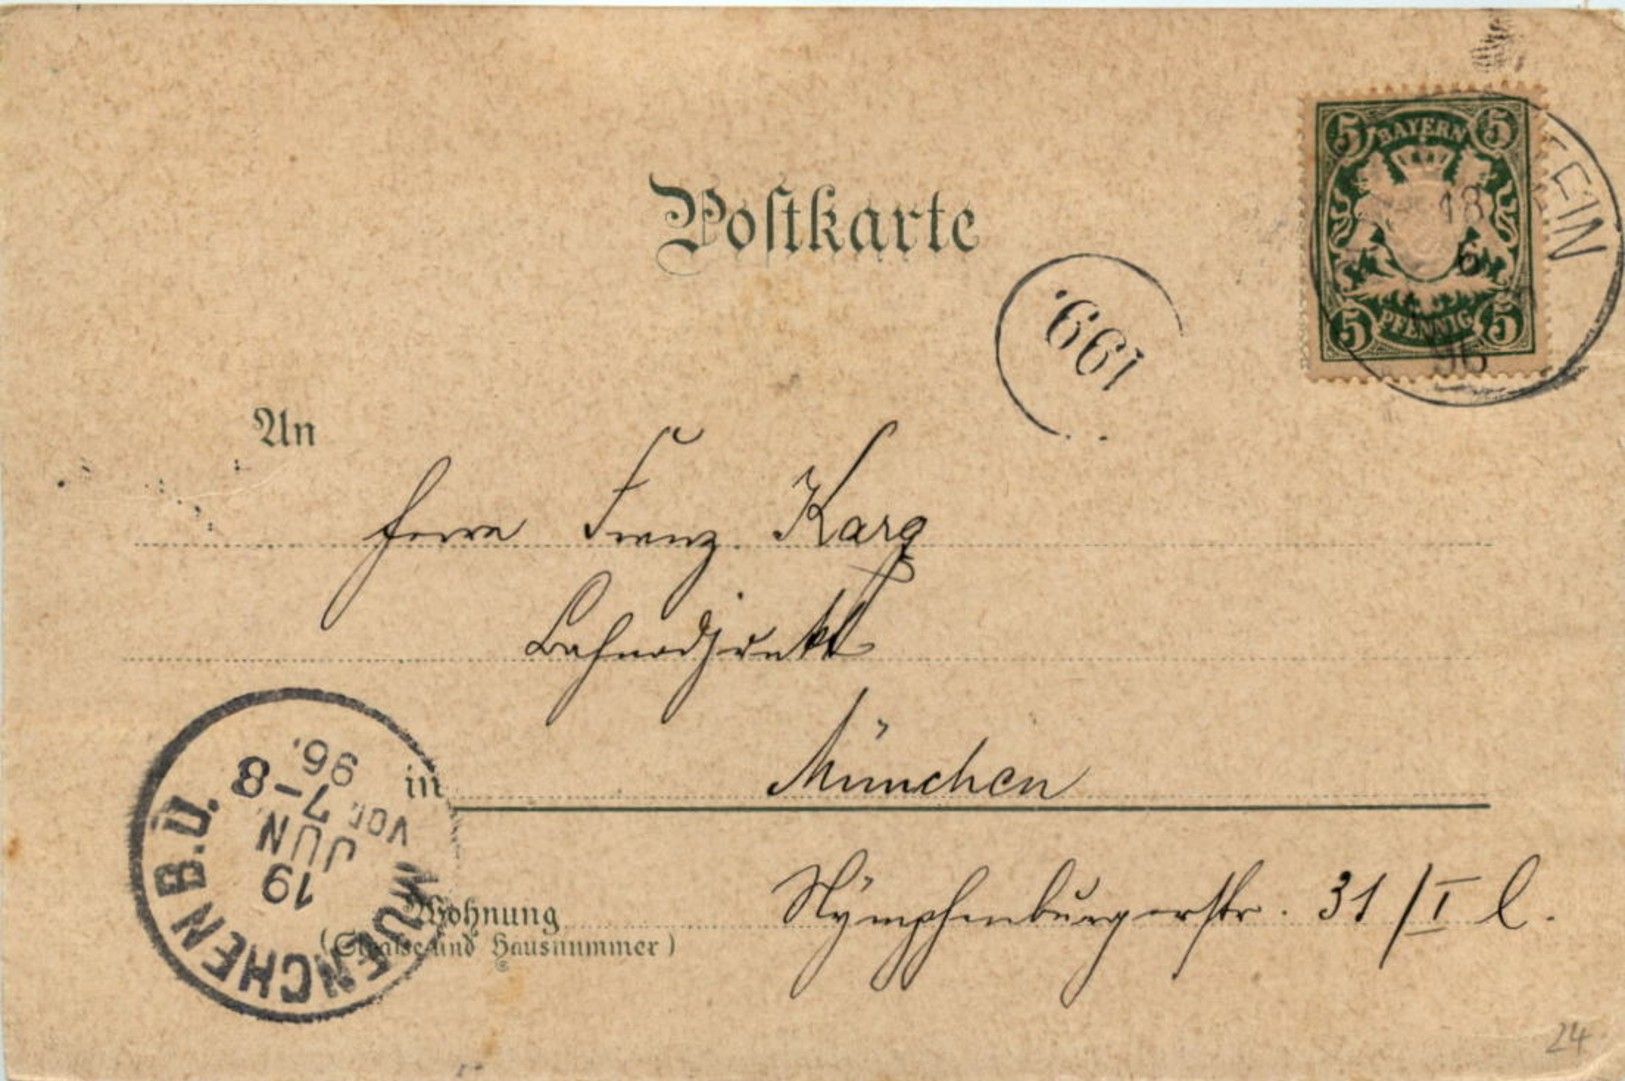 5 BAYERN 5
18
6
96
5 PFENNIG 5
Postkarte
199.
An
Herrn Franz Karg
Bahnadjunkt
in München
Wohnung Nymphenburgerstr. 31/I l.
(Straße und Hausnummer)
MUENCHEN B.U.
19
JUN
VOR. 7-8
96.
24